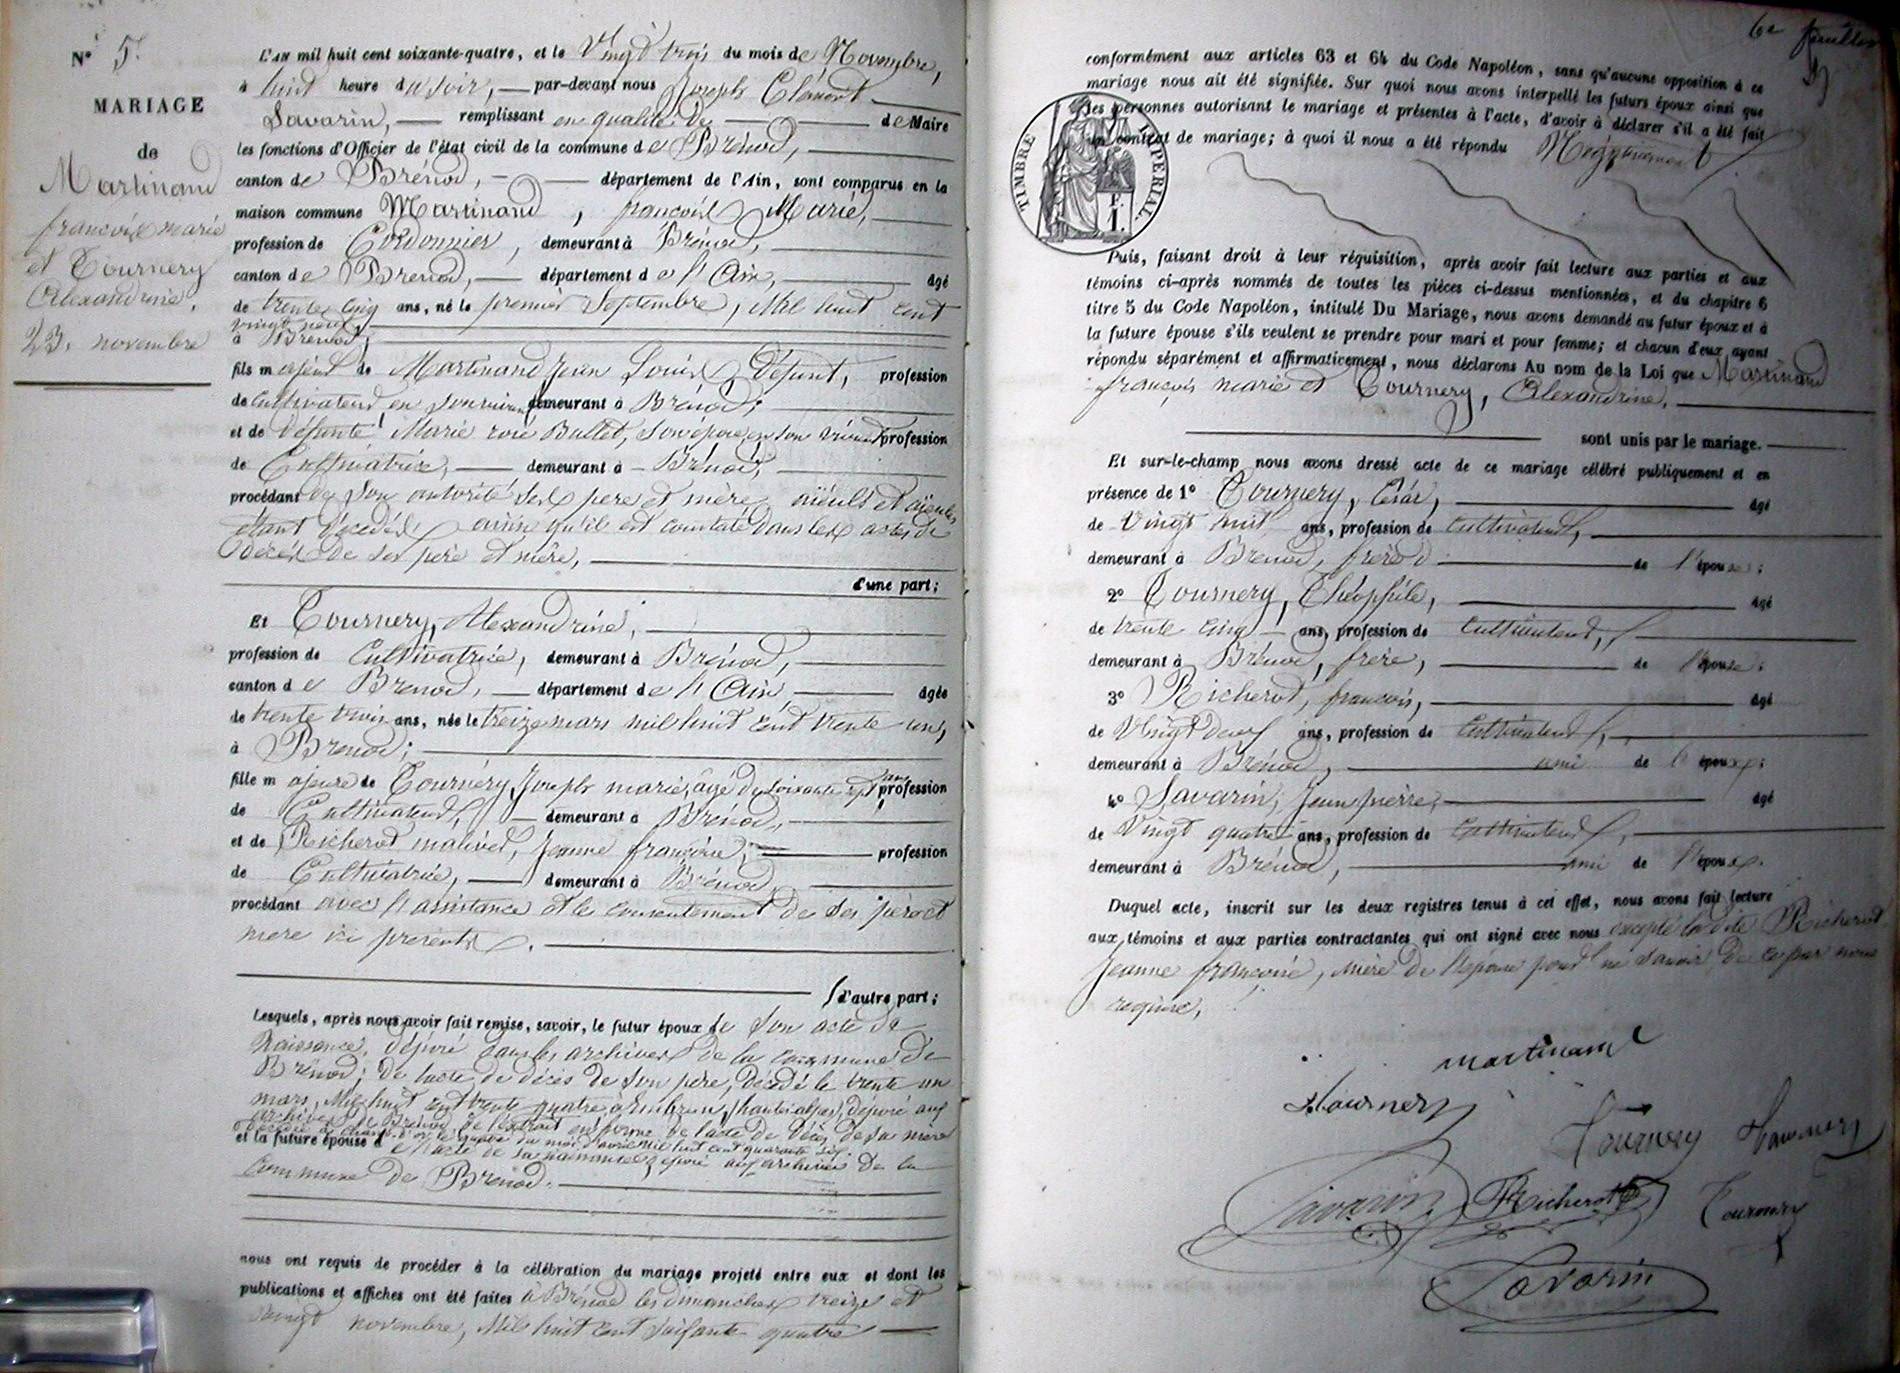 N° 5.
MARIAGE
de
Martinand
françois marie
et Tournery
Alexandrine.
23. novembre
L'AN mil huit cent soixante-quatre, et le Vingt trois du mois de Novembre,
à huit heure du soir, par-devant nous Joseph Clément
Savarin, remplissant en qualité de de Maire
les fonctions d'Officier de l'état civil de la commune de Brénod,
canton de Brénod, département de l'Ain, sont comparus en la
maison commune Martinand, françois Marie,
profession de Cordonnier, demeurant à Brénod,
canton de Brénod, département de l'Ain, âgé
de trente cinq ans, né le premier Septembre, Mil huit cent
vingt neuf,
à Brénod;
fils majeur de Martinand Jean Louis Défunt, profession
de Cultivateur en son vivant demeurant à Brénod;
et de défunte Marie rose Bullet, son épouse, en son vivant profession
de Cultivatrice, demeurant à Brénod,
procédant de son autorité ses père et mère, aïeuls et aïeules
étant décédés, ainsi qu'il est constaté dans les actes de
décès de ses père et mère,
d'une part;
Et Tournery, Alexandrine,
profession de Cultivatrice, demeurant à Brénod,
canton de Brénod, département de l'Ain âgée
de trente trois ans, née le treize mars mil huit cent trente un,
à Brénod;
fille majeure de Tournery, Joseph marie, âgé de soixante sept ans profession
de Cultivateur, demeurant à Brénod,
et de Richerot Jeanne françoise, profession
de Cultivatrice, demeurant à Brénod
procédant avec l'assistance et le consentement de ses père et
mère ici présents.
d'autre part;
Lesquels, après nous avoir fait remise, savoir, le futur époux de son acte de
Naissance, déposé dans les archives de la commune de
Brénod; de l'acte de décès de son père, décédé le trente un
mars, Mil huit cent trente quatre à Embrun, (hautes alpes), déposé aux
archives de Brénod, de l'extrait en forme de l'acte de décès de sa mère
décédée à le quatre du mois d'avril Mil huit cent quarante six.
et la future épouse de l'acte de sa naissance déposé aux archives de la
commune de Brénod.
nous ont requis de procéder à la célébration du mariage projeté entre eux et dont les
publications et affiches ont été faites à Brénod les dimanches treize et
vingt novembre, Mil huit cent soixante quatre
6e feuillet
conformément aux articles 63 et 64 du Code Napoléon, sans qu'aucune opposition à ce
mariage nous ait été signifiée. Sur quoi nous avons interpellé les futurs époux ainsi que
les personnes autorisant le mariage et présentes à l'acte, d'avoir à déclarer s'il a été fait
un contrat de mariage; à quoi il nous a été répondu Négativement
TIMBRE IMPÉRIAL.
Puis, faisant droit à leur réquisition, après avoir fait lecture aux parties et aux
témoins ci-après nommés de toutes les pièces ci-dessus mentionnées, et du chapitre 6
titre 5 du Code Napoléon, intitulé Du Mariage, nous avons demandé au futur époux et à
la future épouse s'ils veulent se prendre pour mari et pour femme; et chacun d'eux ayant
répondu séparément et affirmativement, nous déclarons Au nom de la Loi que Martinand
françois marie et Tournery, Alexandrine,
sont unis par le mariage.
Et sur-le-champ nous avons dressé acte de ce mariage célébré publiquement et en
présence de 1° Tournery, César, âgé
de vingt huit ans, profession de Cultivateur,
demeurant à Brénod, frère de l'épouse;
2° Tournery, Théophile, âgé
de trente cinq ans, profession de Cultivateur,
demeurant à Brénod, frère, de l'épouse;
3° Richerot, françois, âgé
de Vingt deux ans, profession de Cultivateur,
demeurant à Brénod, ami de l'époux;
4° Savarin, Jean pierre, âgé
de Vingt quatre ans, profession de Cultivateur,
demeurant à Brénod, ami de l'époux.
Duquel acte, inscrit sur les deux registres tenus à cet effet, nous avons fait lecture
aux témoins et aux parties contractantes qui ont signé avec nous excepté la dite Richerot
Jeanne françoise, mère de l'épouse pour ne savoir de ce par nous
requise,
martinand
Tournery
Tournery Tournery
Savarin Richerot Tournery
Savarin